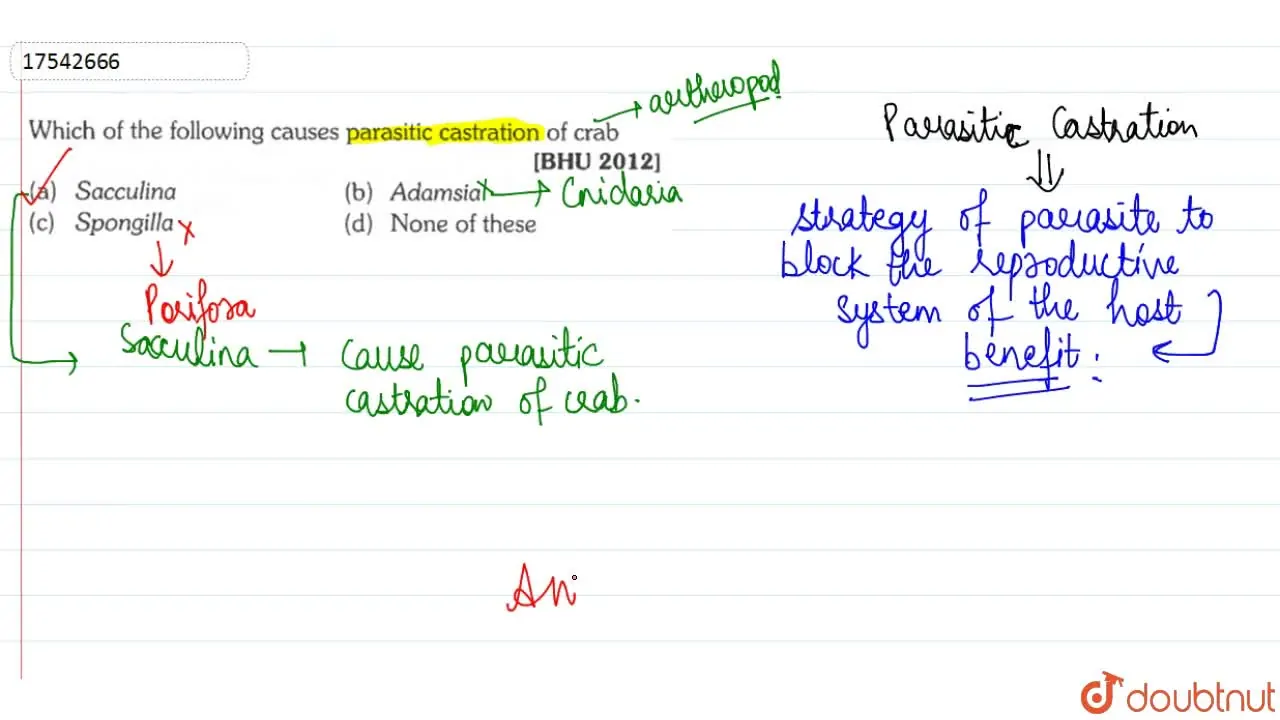 17542666
Which of the following causes parasitic castration of crab
→ artheropod
[BHU 2012]
(a) Sacculina
(b) Adamsia x → Cnidaria
(c) Spongilla x
(d) None of these
Porifora
Sacculina → cause parasitic
castration of crab.
Parasitic Castration
strategy of parasite to
block the reproductive
system of the host
benefit.
An
doubtnut